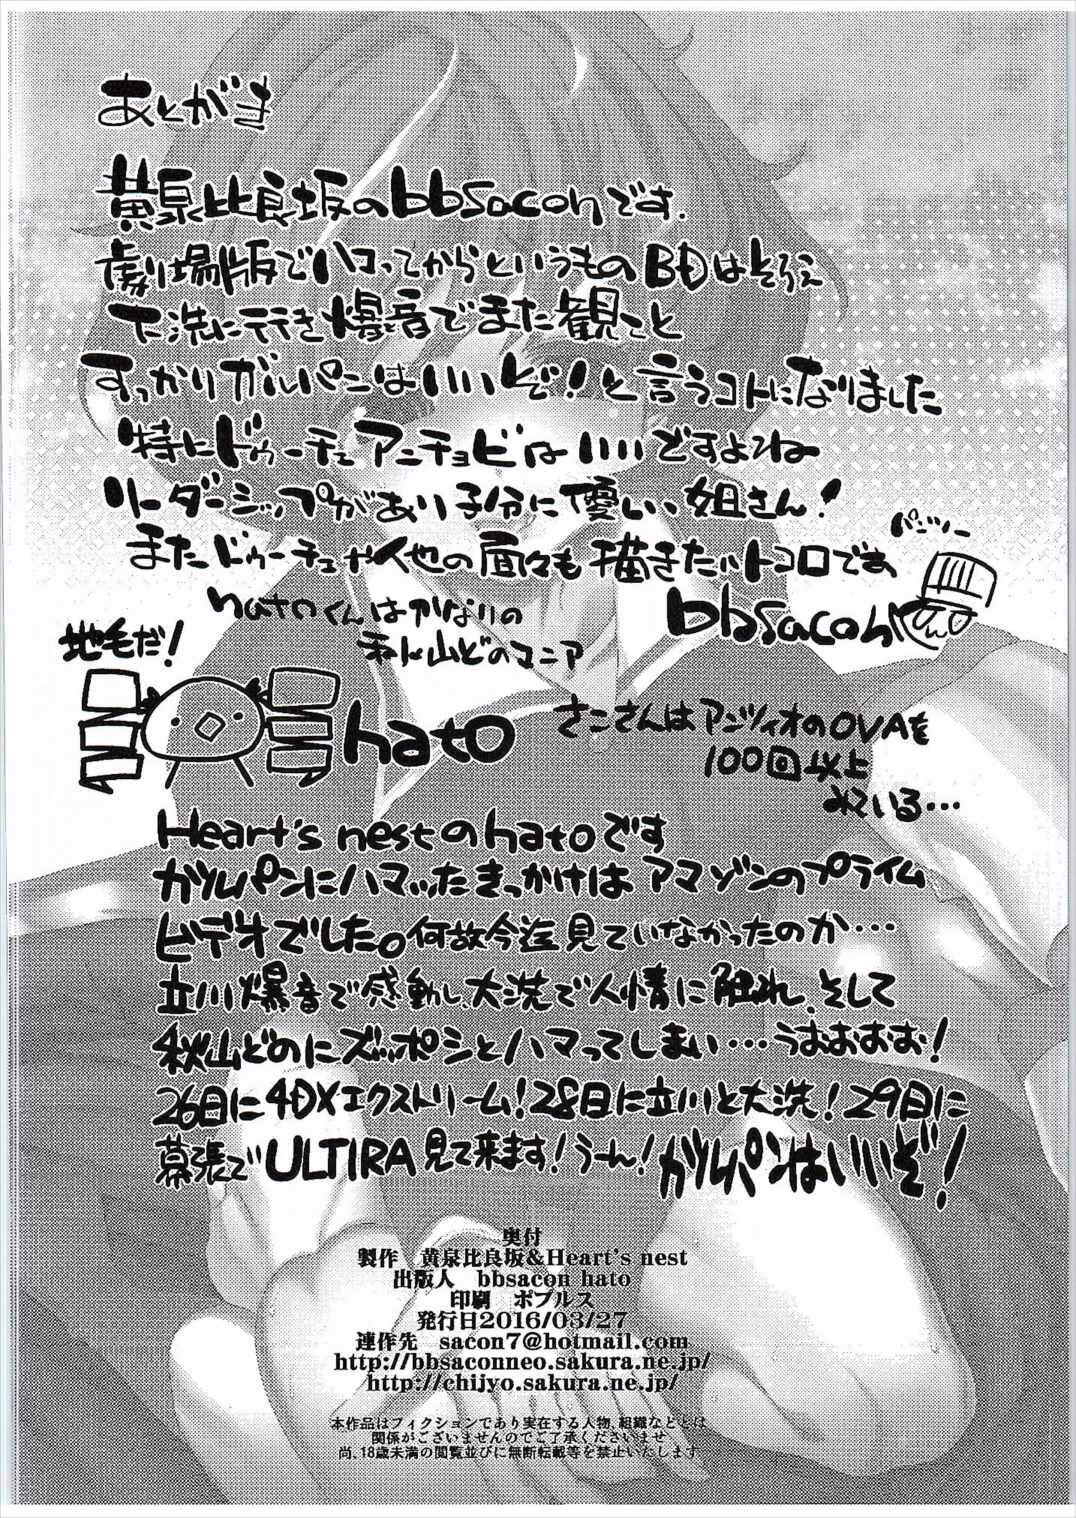 あとがき
黄泉比良坂のbbsaconです.
劇場版でハコってからというものBDはそろえ
大洗に行き爆音でまた観こと
すっかりガルパンはいいぞ!と言うコトになりました
特にドゥーチェアンチョビはいいですよね
リーダーシップがあり子分に優しい、姐さん!
またドゥーチェや他の面々も描きたいトコロです。
パンツァー
bbsacon
hatoくんはかなりの
秋山どのマニア
地毛だ!
hato
さこさんはアンツィオのOVAを
100回以上
みている…
Heart's nestのhatoです
ガルパンにハマッたきっかけはアマゾンのプライム
ビデオでした。何故今迄見ていなかったのか…
立川爆音で感動し、大洗で人情に触れ、そして
秋山どのにズッポシとハマってしまい…うおおおお!
26日に4DXエクストリーム!28日に立川と大洗!29日に
幕張でULTIRA見て来ます!うーん!ガルパンはいいぞ!
奥付
製作 黄泉比良坂&Heart's nest
出版人 bbsacon hato
印刷 ポプルス
発行日2016/03/27
連作先 sacon7@hotmail.com
http://bbsaconneo.sakura.ne.jp/
http://chijyo.sakura.ne.jp/
本作品はフィクションであり実在する人物、組織などとは
関係がございませんのでご了承くださいませ
尚、18歳未満の閲覧並びに無断転載等を禁止いたします